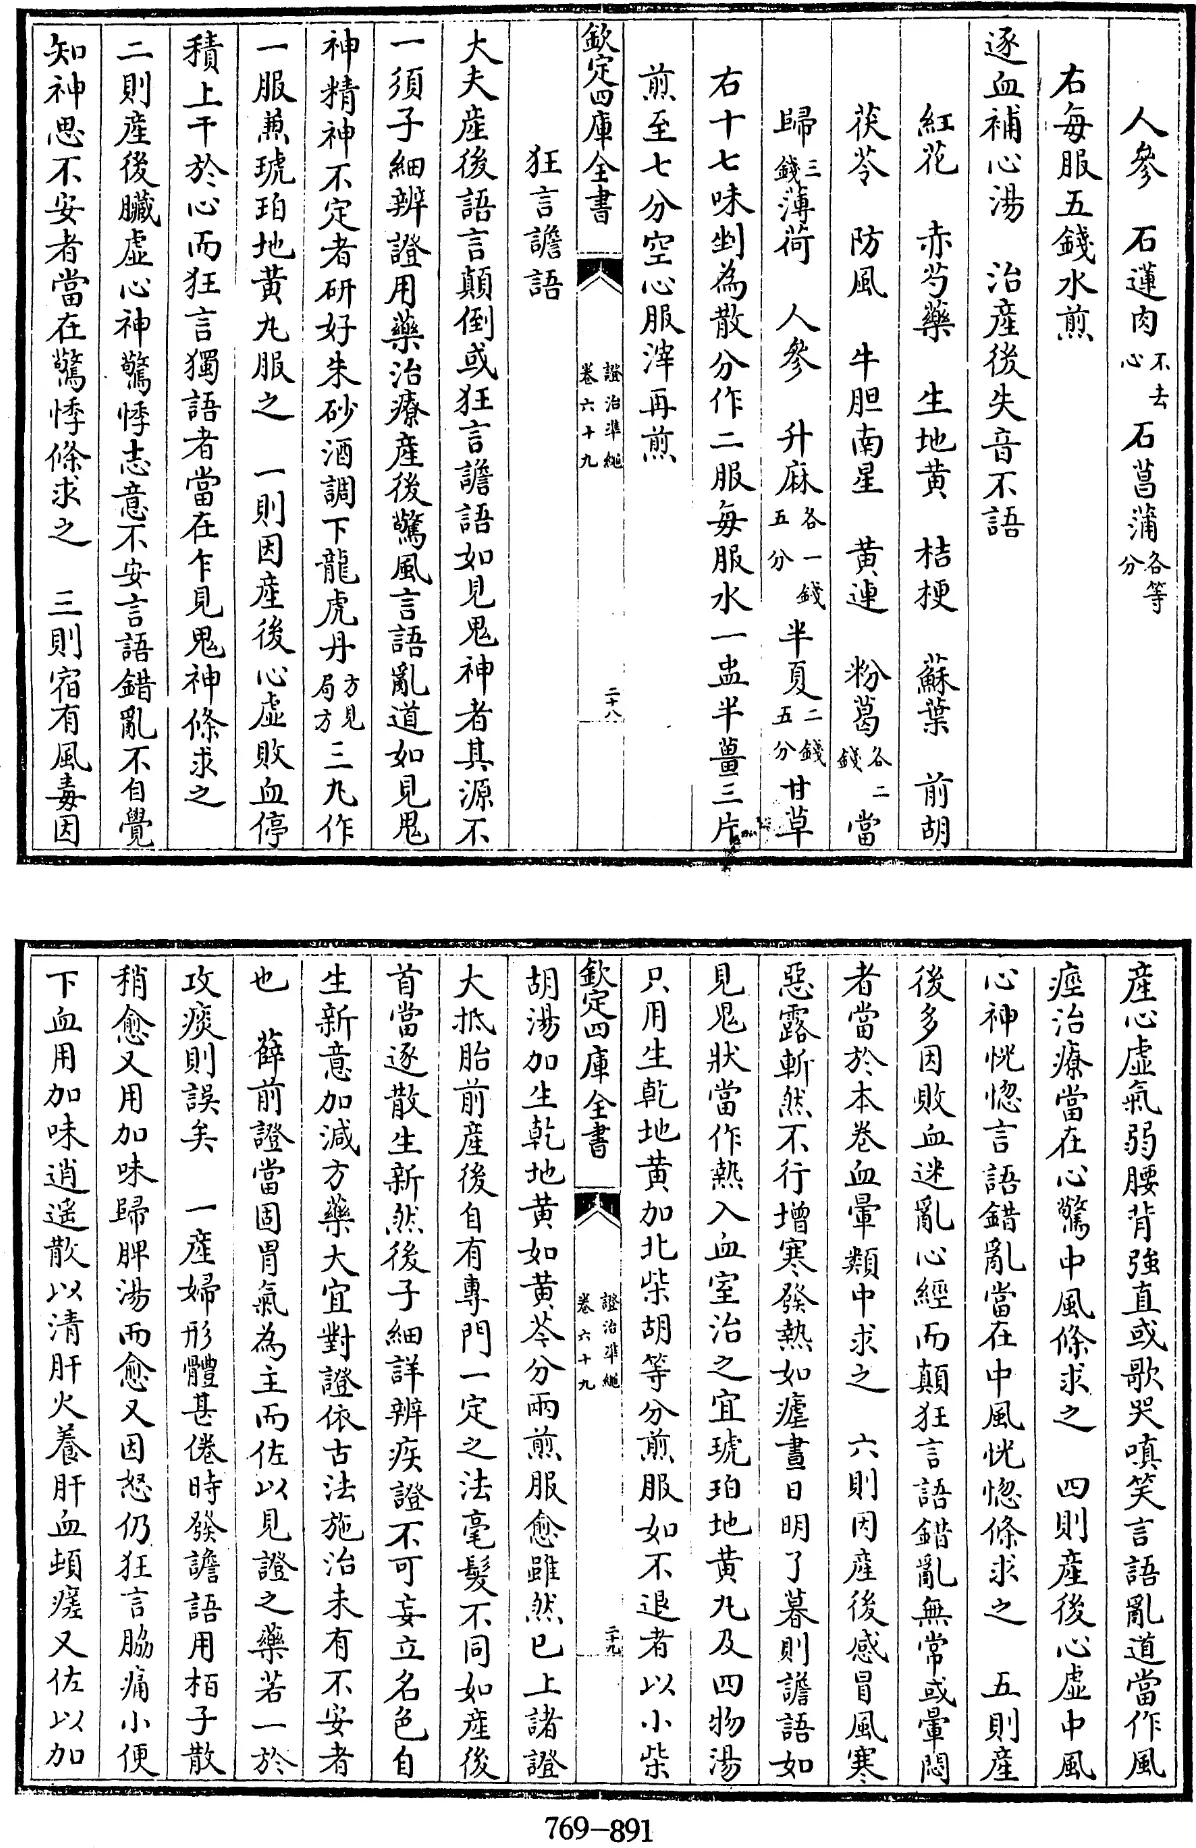 人參　石蓮肉不去心　石菖蒲各等分
右每服五錢水煎
逐血補心湯　治産後失音不語
紅花　赤芍藥　生地黄　桔梗　蘇葉　前胡
茯苓　防風　牛胆南星　黄連　粉葛各二錢　當
歸三錢　薄荷　人參　升麻各一錢五分　半夏二錢五分　甘草
右十七味剉為散分作二服每服水一盅半薑三片
煎至七分空心服滓再煎
欽定四庫全書　證治準繩卷六十九　二十八
狂言譫語
大夫産後語言顛倒或狂言譫語如見鬼神者其源不
一須子細辨證用藥治療産後驚風言語亂道如見鬼
神精神不定者研好朱砂酒調下龍虎丹方見局方三丸作
一服兼琥珀地黄丸服之　一則因産後心虛敗血停
積上干於心而狂言獨語者當在乍見鬼神條求之
二則産後臟虛心神驚悸志意不安言語錯亂不自覺
知神思不安者當在驚悸條求之　三則宿有風毒因
産心虛氣弱腰背強直或歌哭嗔笑言語亂道當作風
痙治療當在心驚中風條求之　四則産後心虛中風
心神恍惚言語錯亂當在中風恍惚條求之　五則産
後多因敗血迷亂心經而顛狂言語錯亂無常或暈悶
者當於本卷血暈類中求之　六則因産後感冒風寒
惡露斬然不行增寒發熱如瘧晝日明了暮則譫語如
見鬼狀當作熱入血室治之宜琥珀地黄丸及四物湯
只用生乾地黄加北柴胡等分煎服如不退者以小柴
欽定四庫全書　證治準繩卷六十九　二十九
胡湯加生乾地黄如黄芩分兩煎服愈雖然已上諸證
大抵胎前産後自有專門一定之法毫髮不同如産後
首當逐散生新然後子細詳辨疾證不可妄立名色自
生新意加減方藥大宜對證依古法施治未有不安者
也　薛前證當固胃氣為主而佐以見證之藥若一於
攻痰則誤矣　一産婦形體甚倦時發譫語用柏子散
稍愈又用加味歸脾湯而愈又因怒仍狂言脇痛小便
下血用加味逍遥散以清肝火養肝血頓瘥又佐以加
769-891